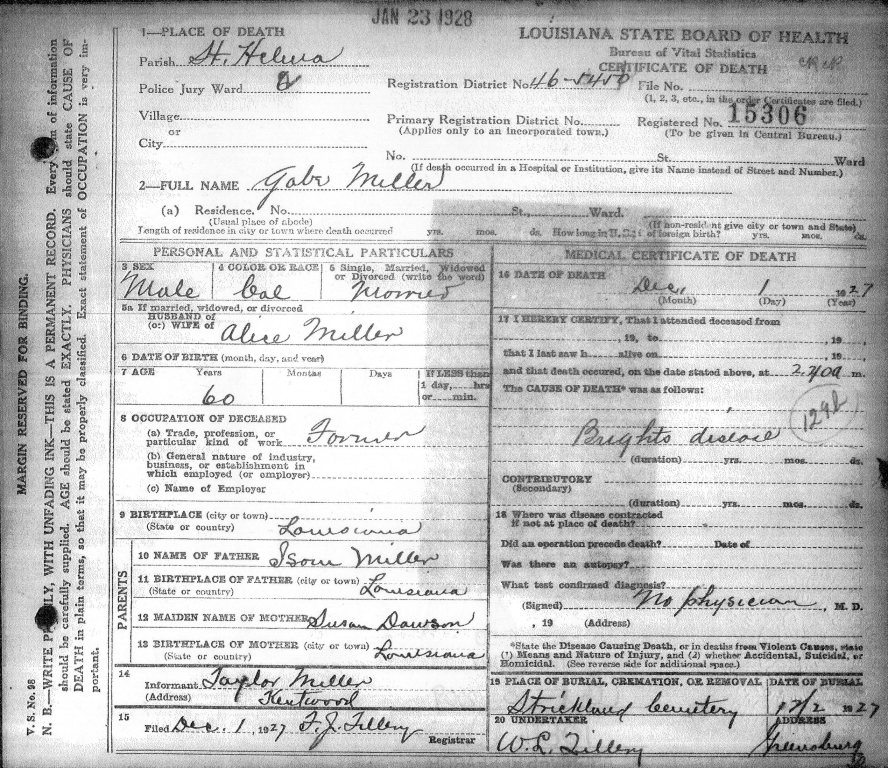 JAN 23 1928
1—PLACE OF DEATH
Parish St. Helena
Police Jury Ward
Village
or
City
LOUISIANA STATE BOARD OF HEALTH
Bureau of Vital Statistics
CERTIFICATE OF DEATH
Registration District No. 46-5450 File No.
(1, 2, 3, etc., in the order Certificates are filed.)
Primary Registration District No. Registered No. 15306
(Applies only to an incorporated town.) (To be given in Central Bureau.)
No. St. Ward
(If death occurred in a Hospital or Institution, give its Name instead of Street and Number.)
2—FULL NAME Gabe Miller
(a) Residence. No. St., Ward.
(Usual place of abode) (If non-resident give city or town and State)
Length of residence in city or town where death occurred yrs. mos. ds. How long in U. S. if of foreign birth? yrs. mos. ds.
PERSONAL AND STATISTICAL PARTICULARS
3 SEX 4 COLOR OR RACE 5 Single, Married, Widowed
or Divorced (write the word)
Male Col Married
5a If married, widowed, or divorced
HUSBAND of
(or) WIFE of Alice Miller
6 DATE OF BIRTH (month, day, and year)
7 AGE Years Months Days If LESS than
1 day, hrs
or min.
60
8 OCCUPATION OF DECEASED
(a) Trade, profession, or
particular kind of work Farmer
(b) General nature of industry,
business, or establishment in
which employed (or employer)
(c) Name of Employer
9 BIRTHPLACE (city or town)
(State or country) Louisiana
PARENTS
10 NAME OF FATHER Isom Miller
11 BIRTHPLACE OF FATHER (city or town)
(State or country) Louisiana
12 MAIDEN NAME OF MOTHER Susan Dawson
13 BIRTHPLACE OF MOTHER (city or town)
(State or country) Louisiana
14
Informant Taylor Miller
(Address) Kentwood
15
Filed Dec. 1, 1927 F. J. Tillery
Registrar
MEDICAL CERTIFICATE OF DEATH
16 DATE OF DEATH
Dec, 1 1927
(Month) (Day) (Year)
17 I HEREBY CERTIFY, That I attended deceased from
, 19 , to , 19 ,
that I last saw h alive on , 19 ,
and that death occurred, on the date stated above, at 2.40a m.
The CAUSE OF DEATH* was as follows:
129b
Brights disease
(duration) yrs. mos. ds.
CONTRIBUTORY
(Secondary)
(duration) yrs. mos. ds.
18 Where was disease contracted
if not at place of death?
Did an operation precede death? Date of
Was there an autopsy?
What test confirmed diagnosis?
(Signed) No physician, M. D.
, 19 (Address)
*State the Disease Causing Death, or in deaths from Violent Causes, state
(1) Means and Nature of Injury, and (2) whether Accidental, Suicidal, or
Homicidal. (See reverse side for additional space.)
19 PLACE OF BURIAL, CREMATION, OR REMOVAL DATE OF BURIAL
Strickland Cemetery 12/2 1927
20 UNDERTAKER ADDRESS
W. L. Tillery Greensburg
MARGIN RESERVED FOR BINDING.
N. B.—WRITE PLAINLY, WITH UNFADING INK—THIS IS A PERMANENT RECORD. Every item of information
should be carefully supplied. AGE should be stated EXACTLY. PHYSICIANS should state CAUSE OF
DEATH in plain terms, so that it may be properly classified. Exact statement of OCCUPATION is very im-
portant.
V. S. No. 98